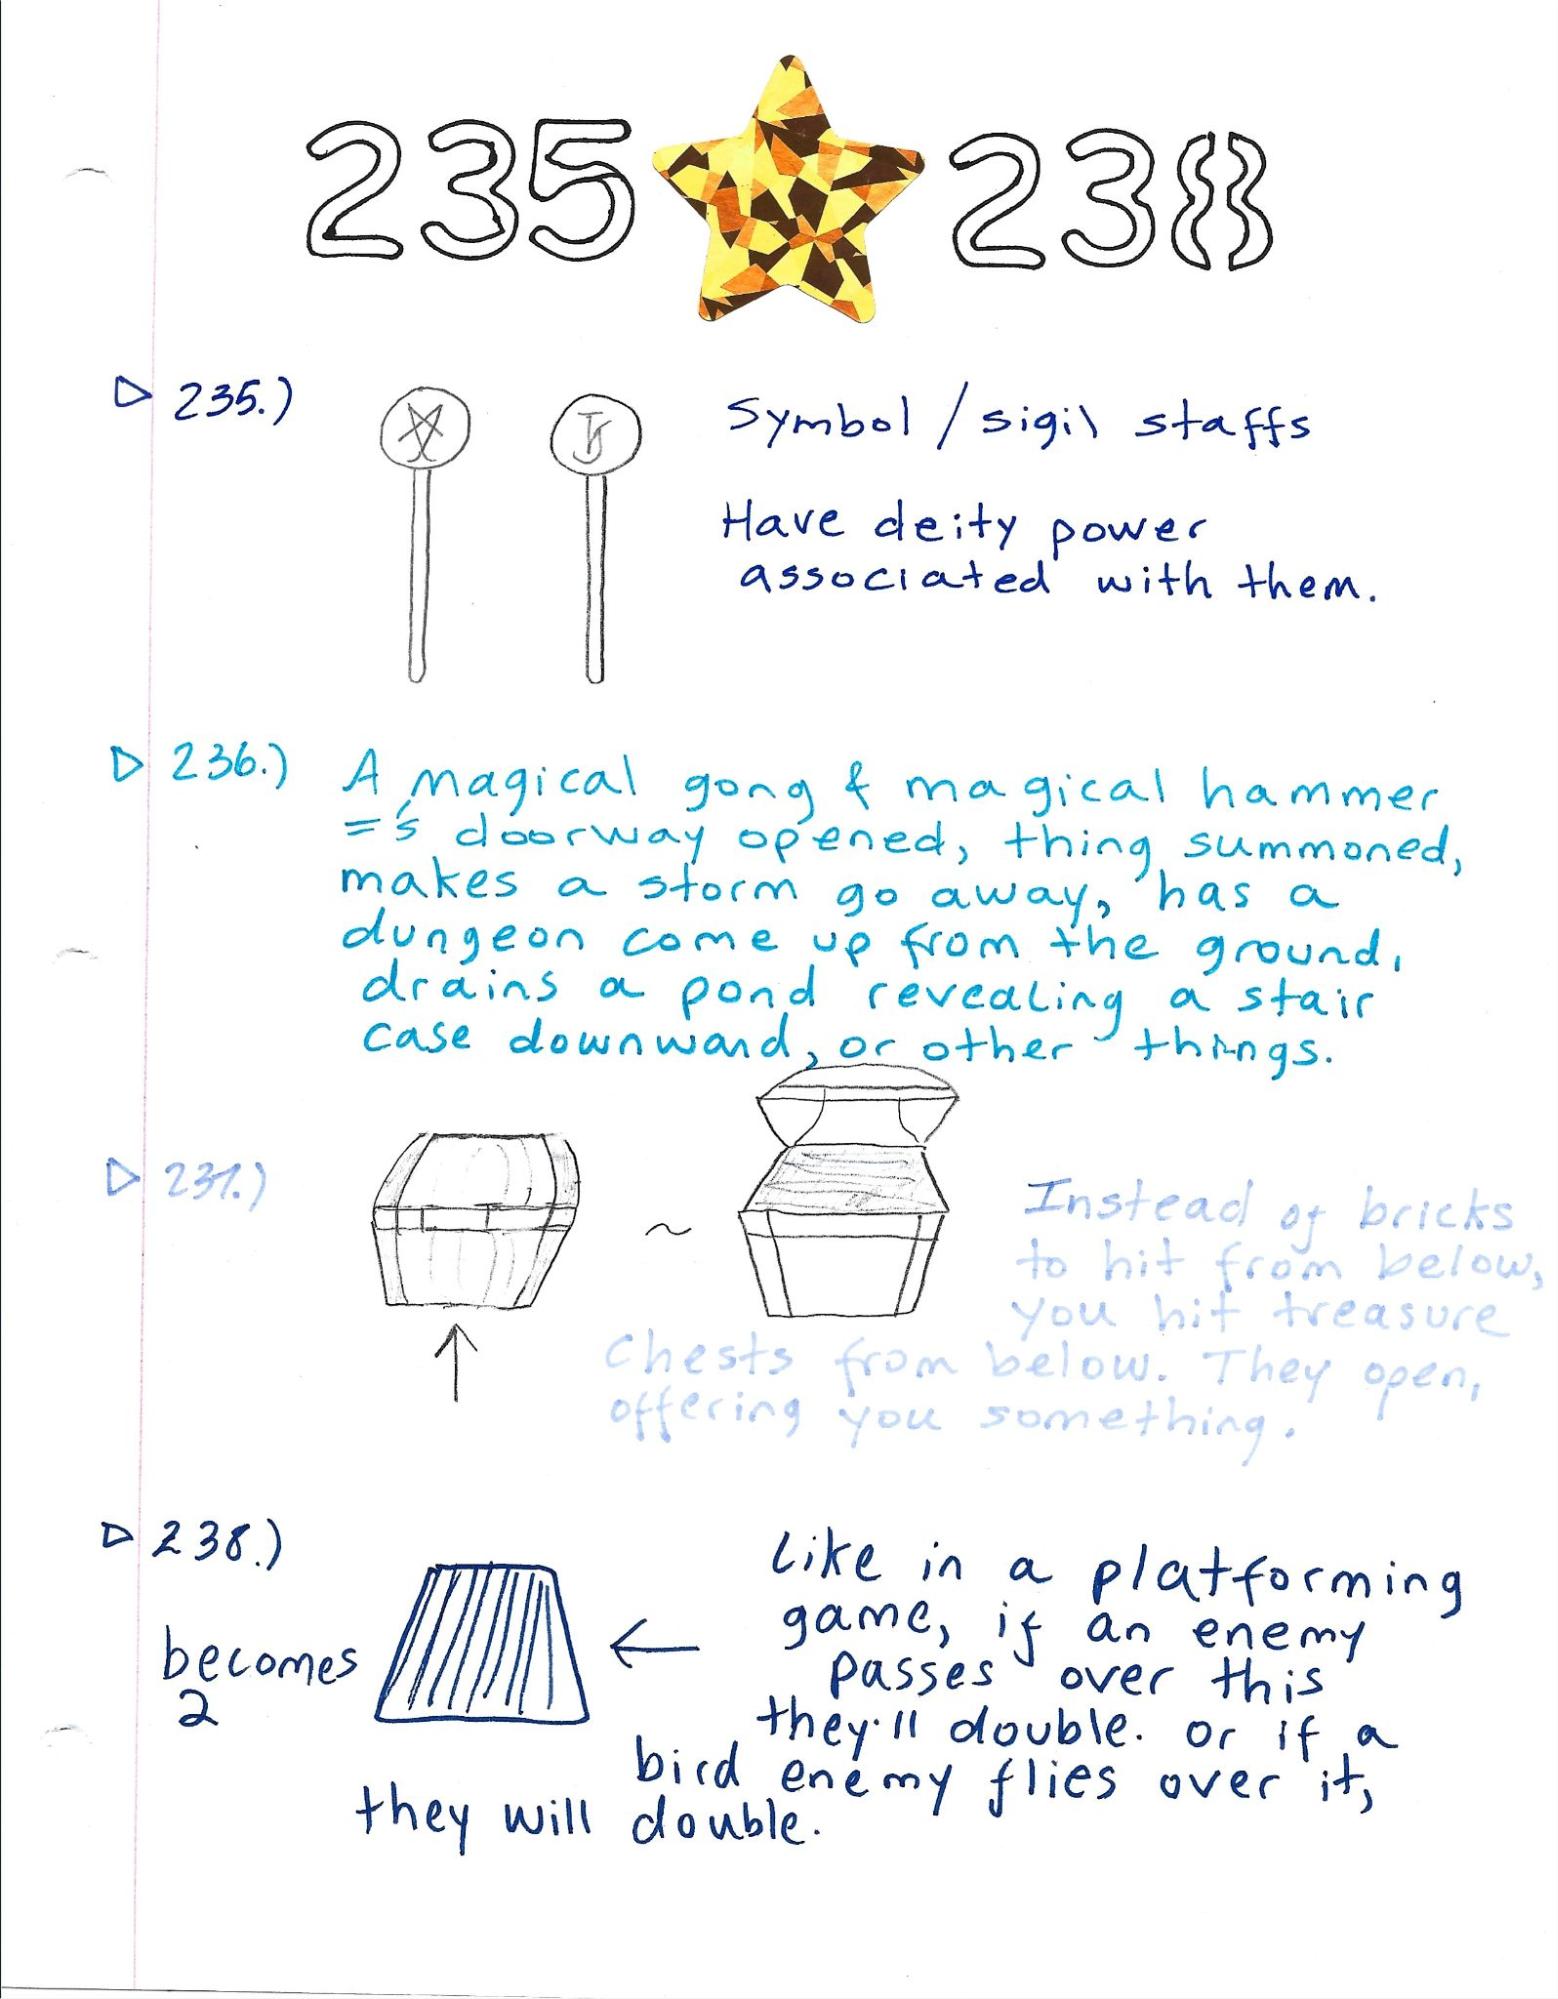 235 238
235.)
Symbol / sigil staffs
Have deity power
associated with them.
236.) A magical gong & magical hammer
='s doorway opened, thing summoned,
makes a storm go away, has a
dungeon come up from the ground,
drains a pond revealing a stair
case downward, or other things.
237.)
~
Instead of bricks
to hit from below,
you hit treasure
Chests from below. They open,
offering you something.
238.)
becomes
2
like in a platforming
game, if an enemy
passes over this
they'll double. or if a
bird enemy flies over it,
they will double.